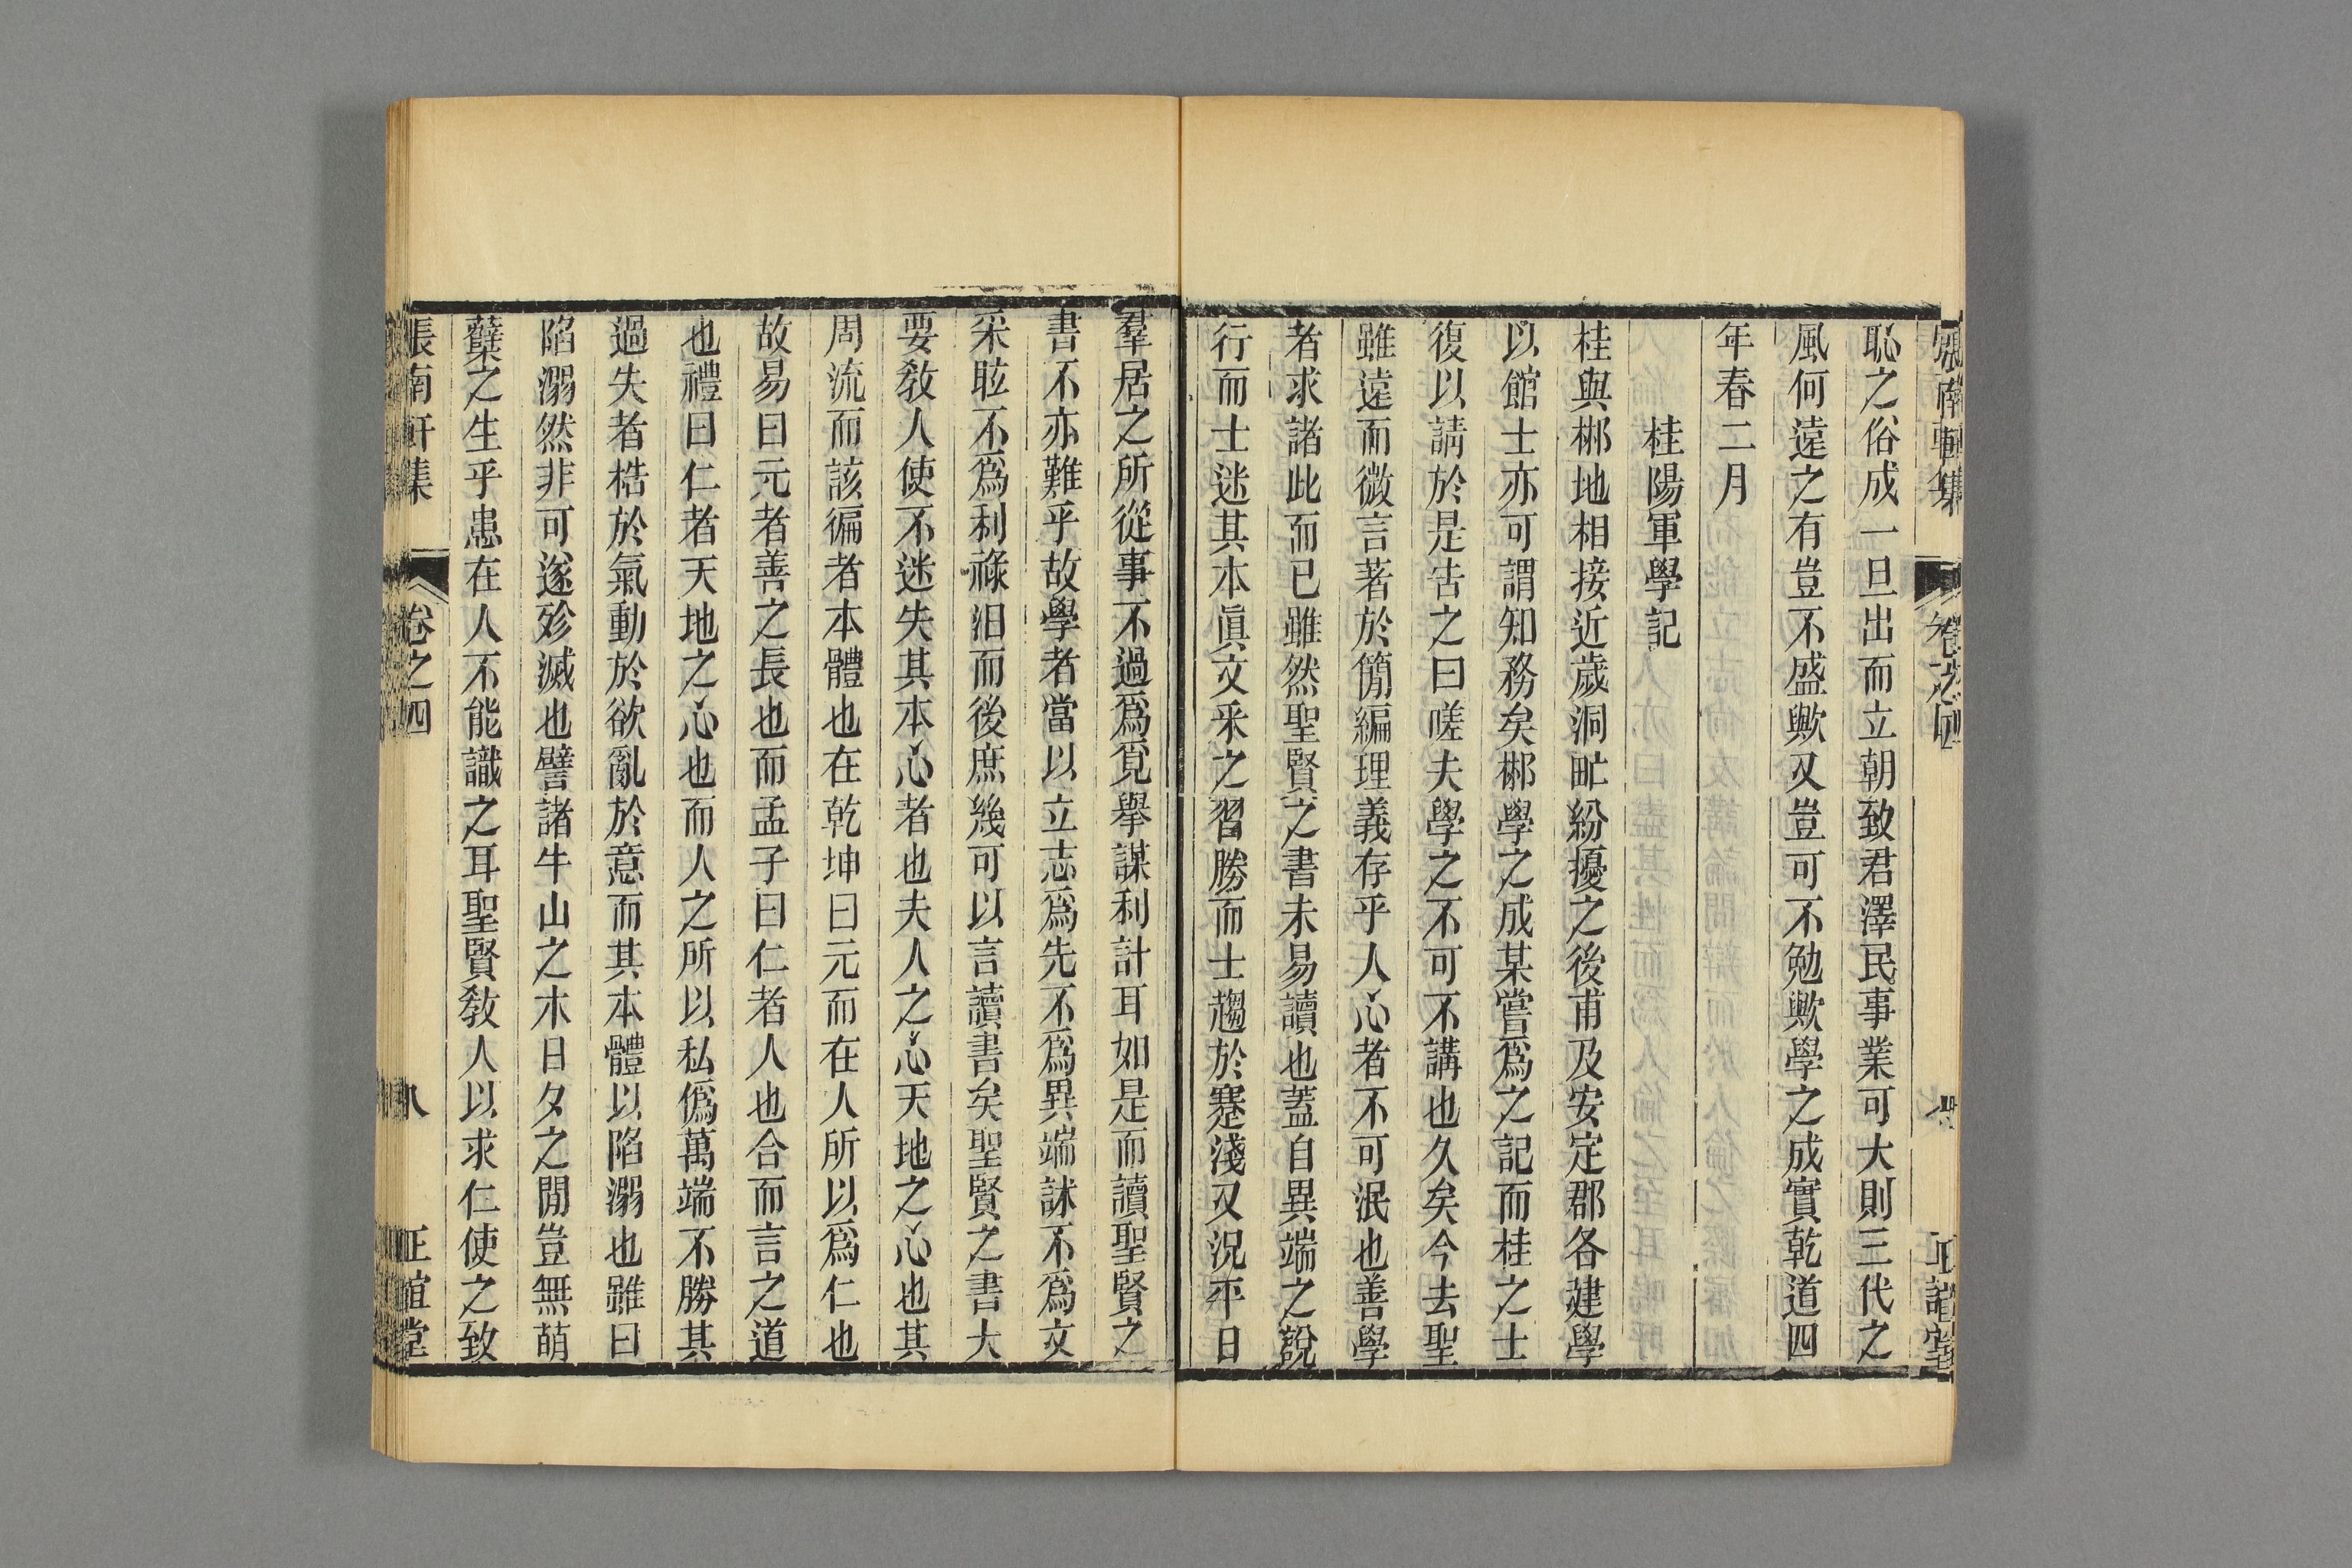 張南軒集 卷之四 正誼堂
恥之俗成一旦出而立朝致君澤民事業可大則三代之
風何遠之有豈不盛歟又豈可不勉歟學之成實乾道四
年春二月
桂陽軍學記
桂與郴地相接近歲洞甿紛擾之後甫及安定郡各建學
以館士亦可謂知務矣郴學之成某嘗爲之記而桂之士
復以請於是告之曰嗟夫學之不可不講也久矣今去聖
雖遠而微言著於簡編理義存乎人心者不可泯也善學
者求諸此而已雖然聖賢之書未易讀也蓋自異端之說
行而士迷其本眞文采之習勝而士趨於蹇淺又況平日
羣居之所從事不過爲覓舉謀利計耳如是而讀聖賢之
書不亦難乎故學者當以立志爲先不爲異端訹不爲文
采眩不爲利祿汩而後庶幾可以言讀書矣聖賢之書大
要敎人使不迷失其本心者也夫人之心天地之心也其
周流而該徧者本體也在乾坤曰元而在人所以爲仁也
故易曰元者善之長也而孟子曰仁者人也合而言之道
也禮曰仁者天地之心也而人之所以私僞萬端不勝其
過失者梏於氣動於欲亂於意而其本體以陷溺也雖曰
陷溺然非可遂殄滅也譬諸牛山之木日夕之閒豈無萌
蘖之生乎患在人不能識之耳聖賢敎人以求仁使之致
張南軒集 卷之四 八 正誼堂